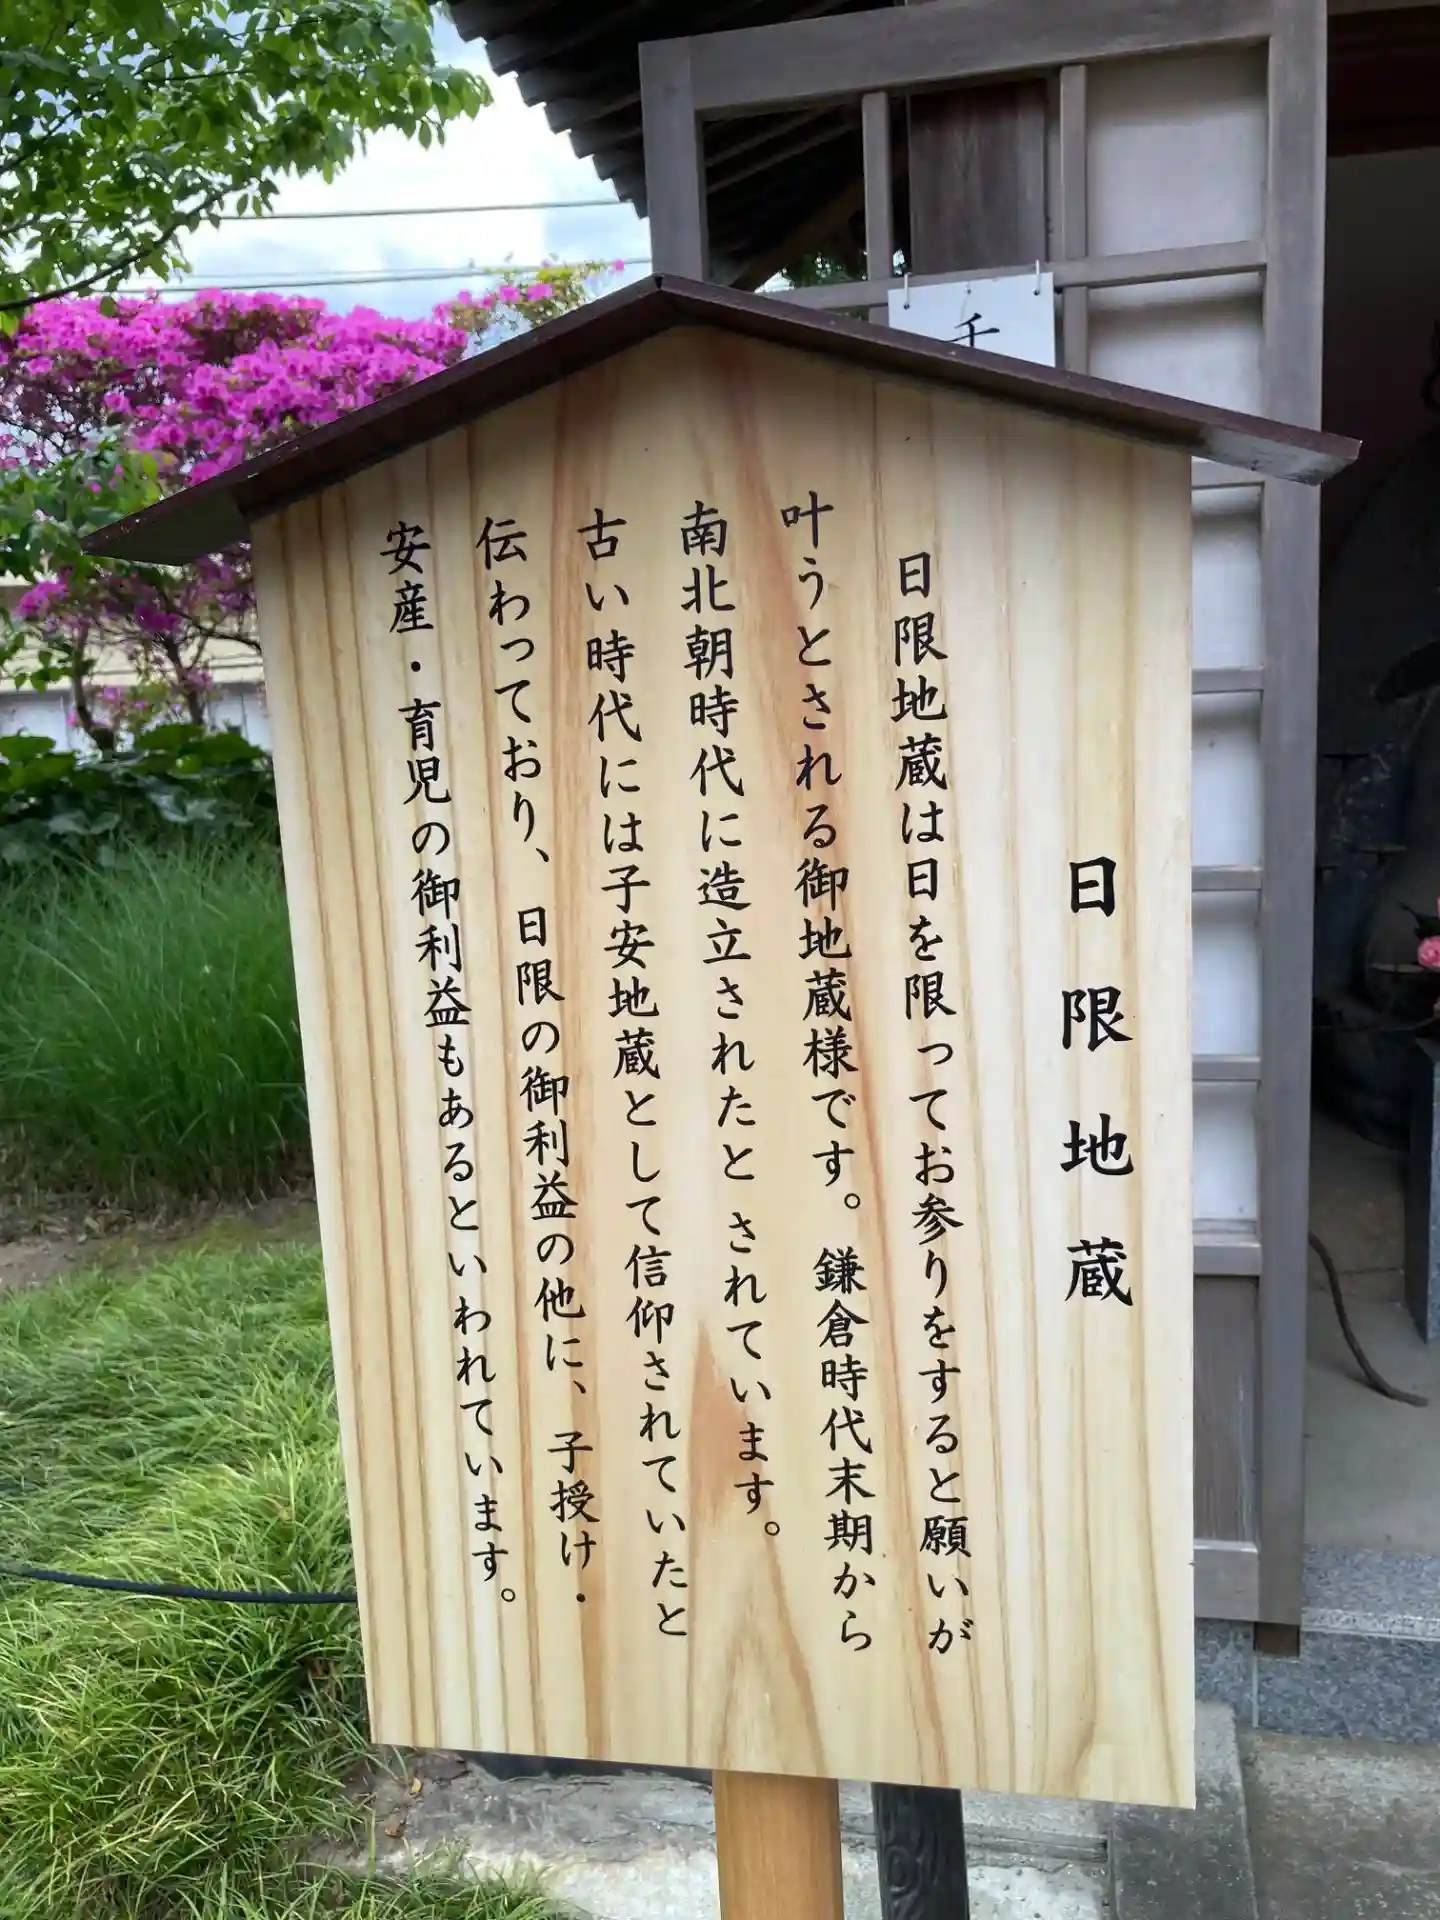 日限地蔵
日限地蔵は日を限ってお参りをすると願いが
叶うとされる御地蔵様です。鎌倉時代末期から
南北朝時代に造立されたとされています。
古い時代には子安地蔵として信仰されていたと
伝わっており、日限の御利益の他に、子授け・
安産・育児の御利益もあるといわれています。